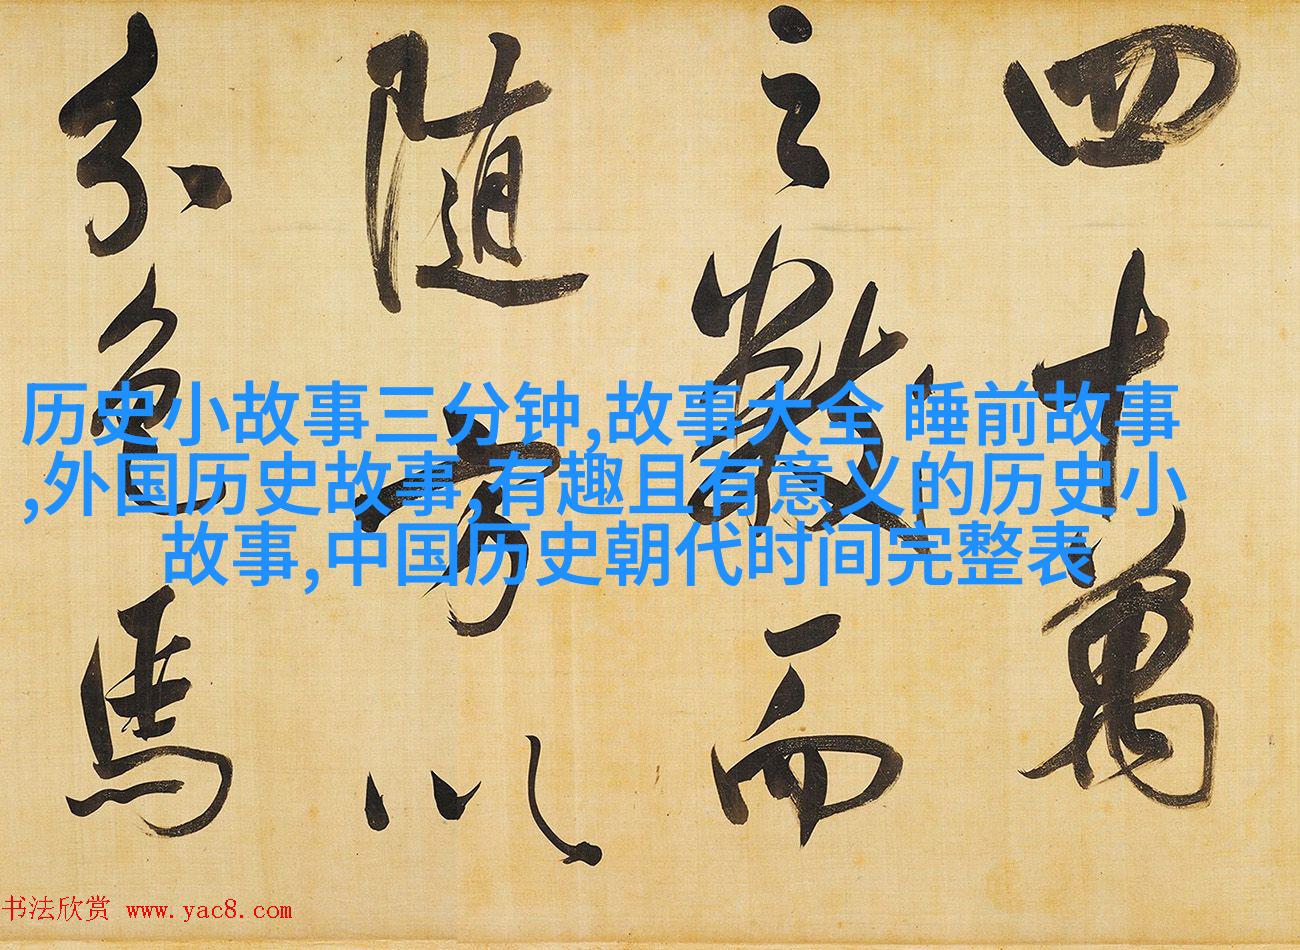 四十萬
之數而
随方以
分色馬
历史小故事三分钟,故事大全 睡前故事
,外国历史故事,有趣且有意义的历史小
故事,中国历史朝代时间完整表
书法欣赏 www.yac8.com